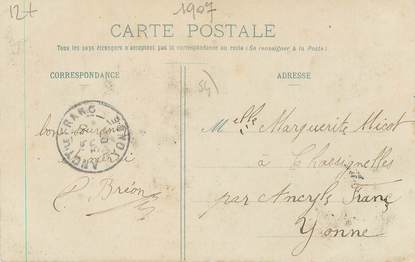 12+
1907
CARTE POSTALE
Tous les pays étrangers n'acceptent pas la correspondance au recto (Se renseigner à la Poste)
CORRESPONDANCE
ADRESSE
bon souvenir
merci
C. Bréon
ANCY-LE-FRANC
YONNE
Melle Marguerite Micot
à Chassignelles
par Ancy le Franc
Yonne